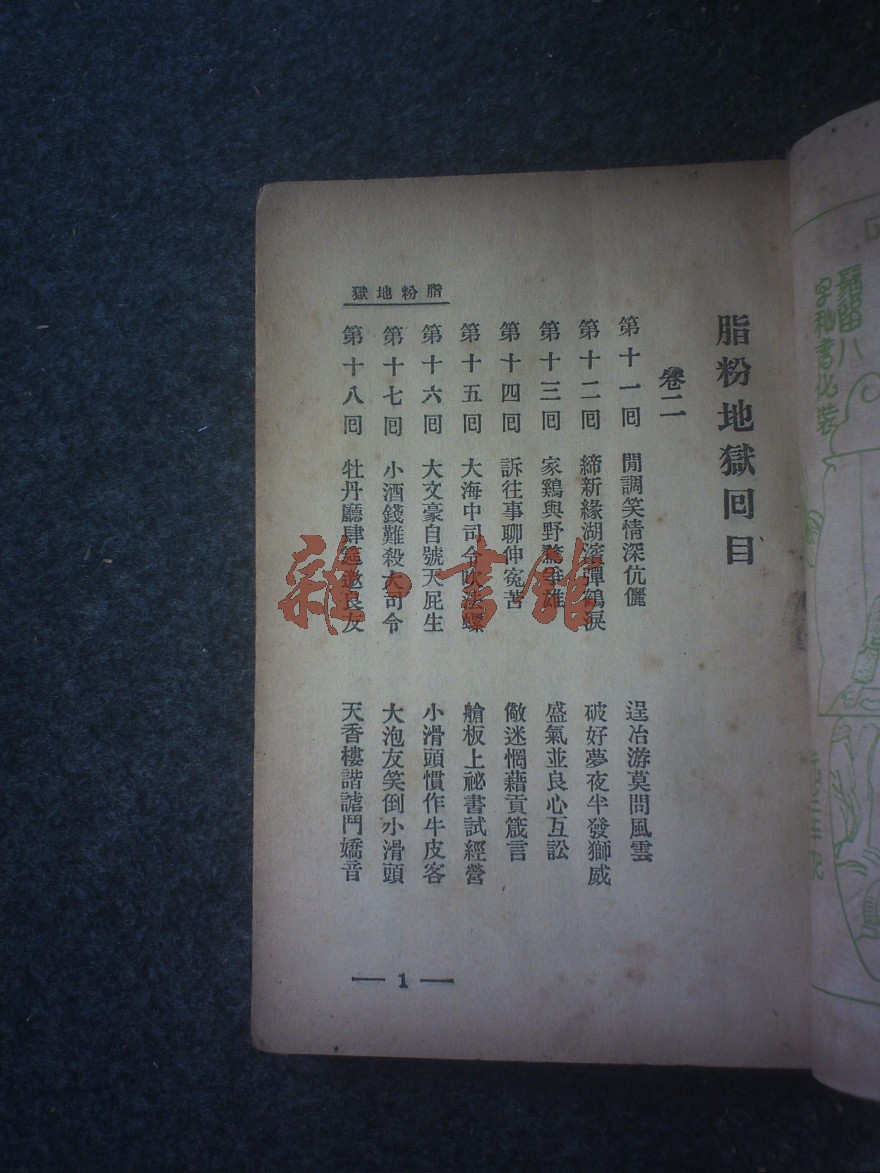 脂粉地獄回目
卷二
第十一回 閒調笑情深伉儷 逞冶游莫問風雲
第十二回 締新緣湖濱譚鶴淚 破好夢夜半發獅威
第十三回 家鷄與野鶩爭雄 盛氣並良心互訟
第十四回 訴往事聊伸寃苦 儆迷惘藉貢箴言
第十五回 大海中司令吹法螺 艙板上祕書試經營
第十六回 大文豪自號天屁生 小滑頭慣作牛皮客
第十七回 小酒錢難殺大司令 大泡友笑倒小滑頭
第十八回 牡丹廳肆筵邀良友 天香樓諧謔鬥嬌音
脂粉地獄
— 1 —
雜·書館
字秘書化裝